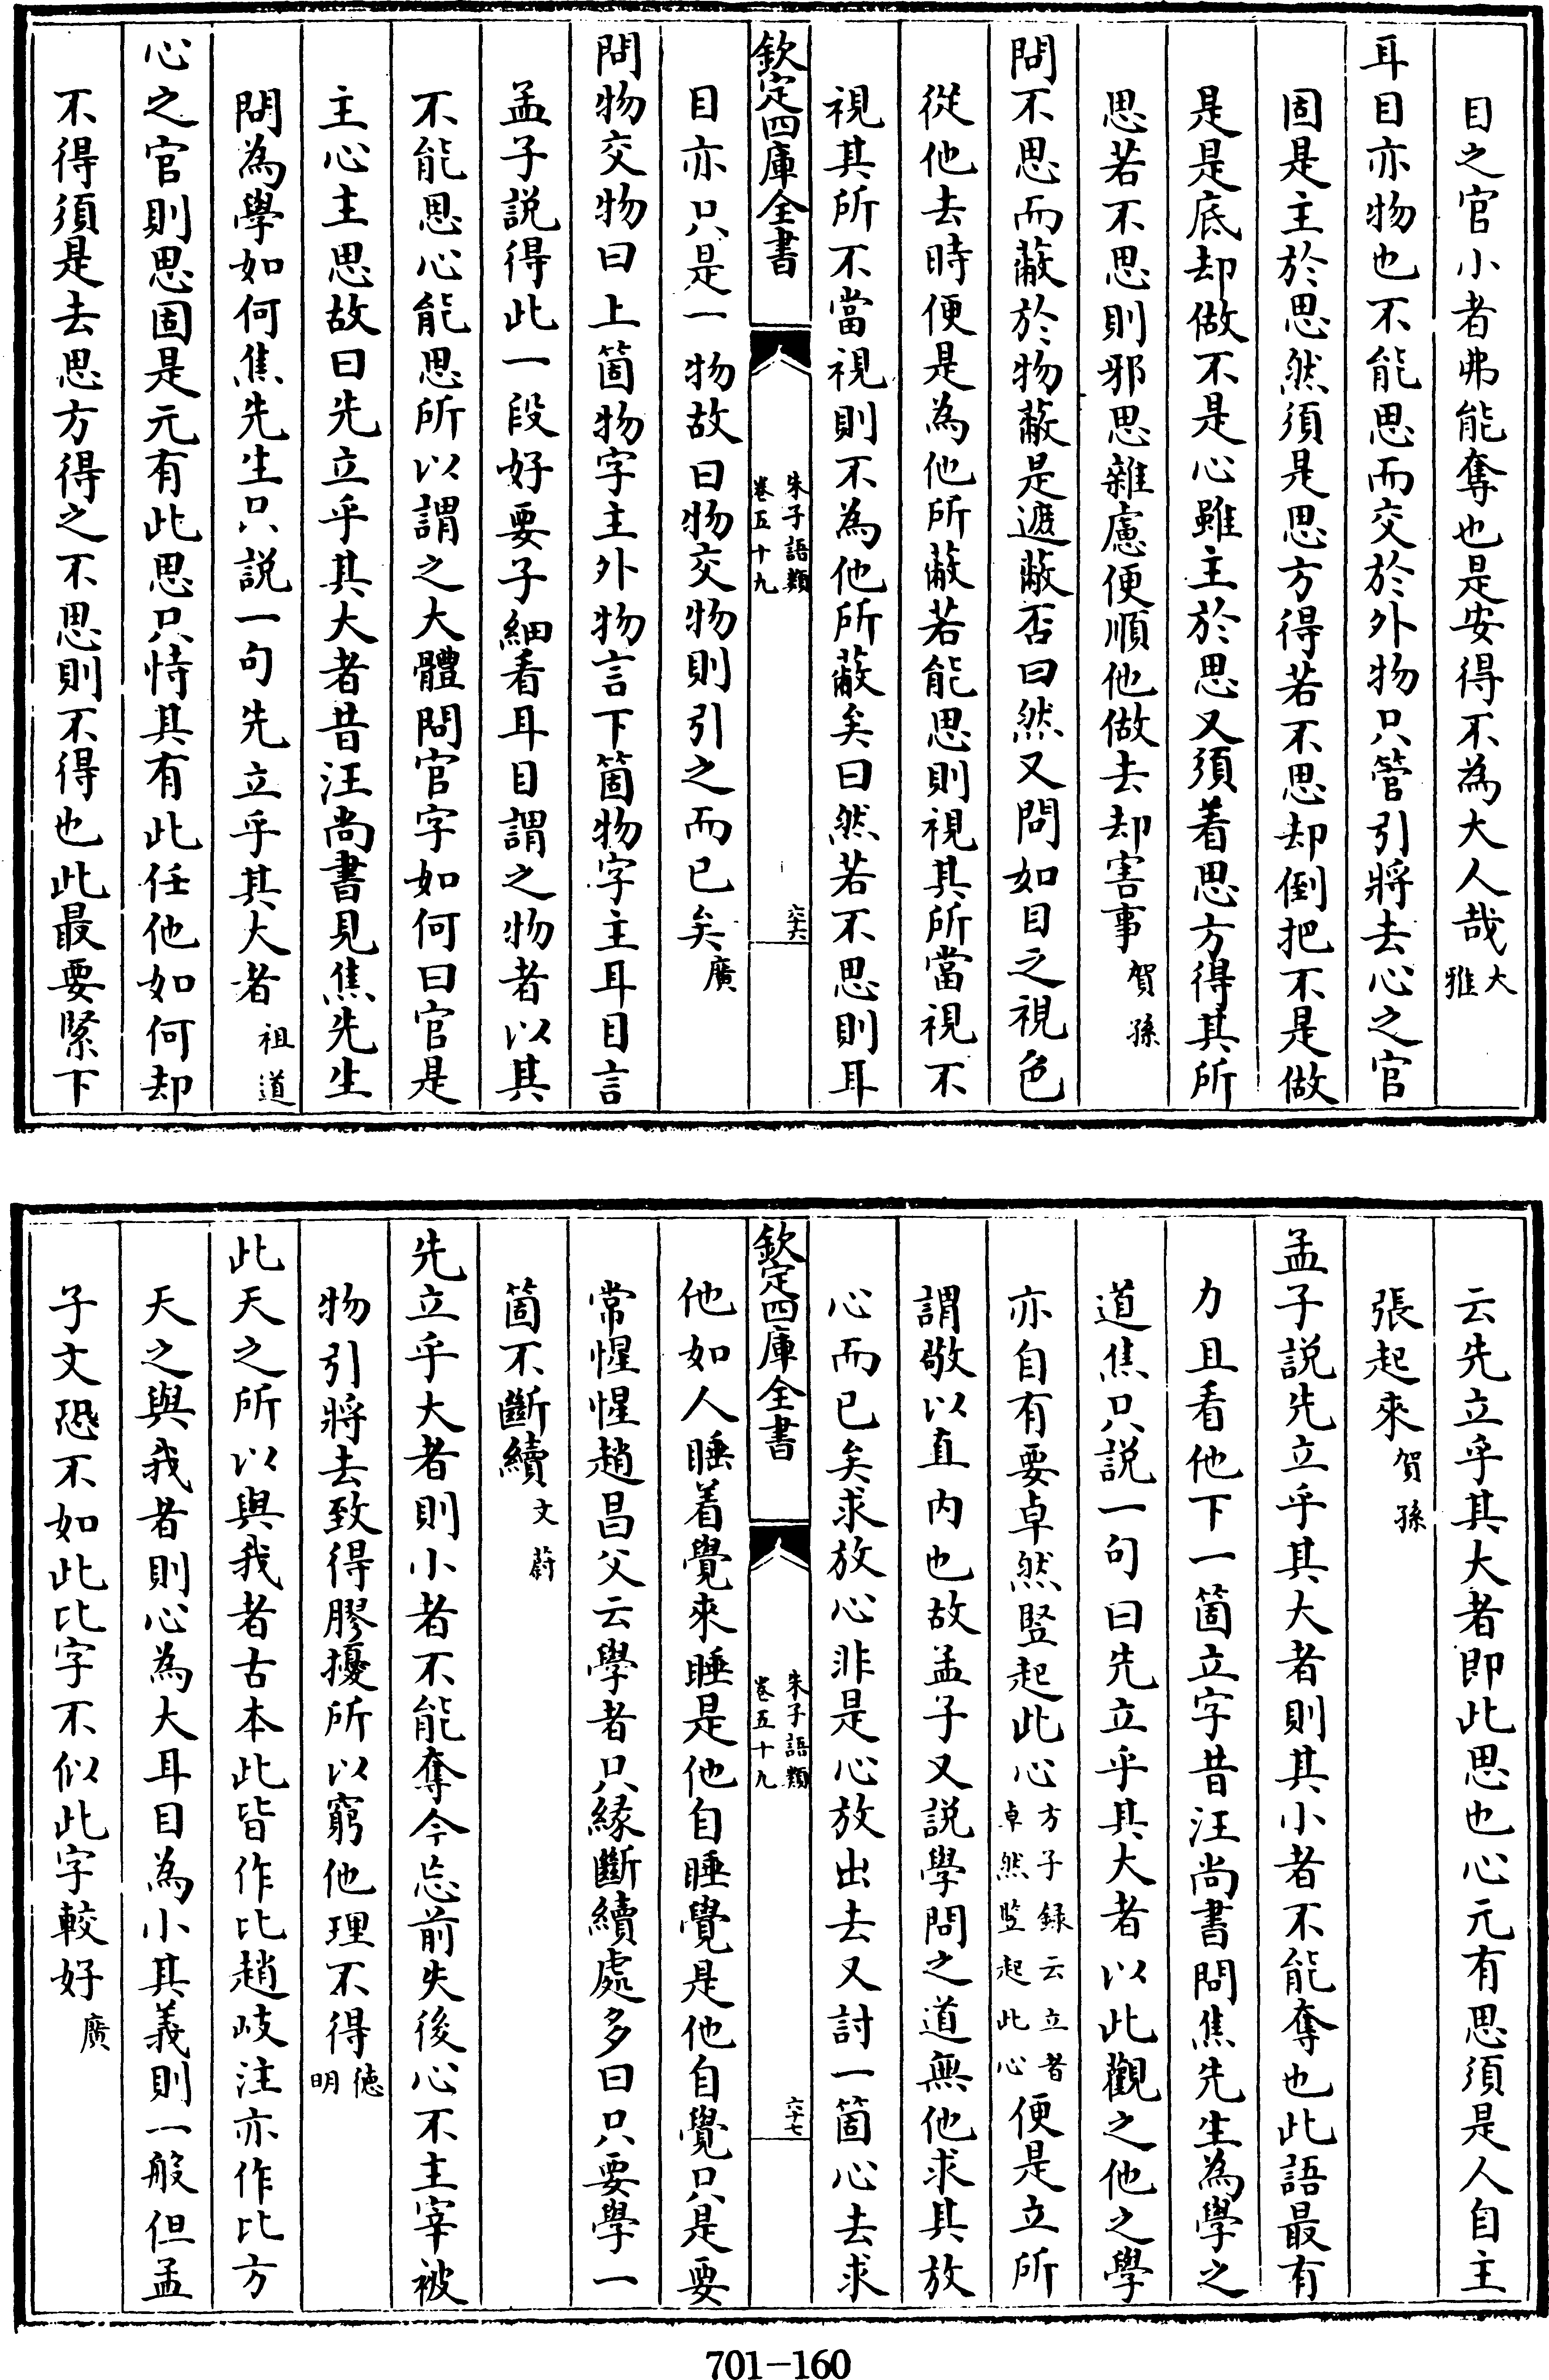 目之官小者弗能奪也是安得不為大人哉大雅
耳目亦物也不能思而交於外物只管引將去心之官
固是主於思然須是思方得若不思却倒把不是做
是是底却做不是心雖主於思又須着思方得其所
思若不思則邪思雜慮便順他做去却害事賀孫
問不思而蔽於物蔽是遮蔽否曰然又問如目之視色
從他去時便是為他所蔽若能思則視其所當視不
視其所不當視則不為他所蔽矣曰然若不思則耳
欽定四庫全書
朱子語類
卷五十九
六十六
目亦只是一物故曰物交物則引之而已矣廣
問物交物曰上箇物字主外物言下箇物字主耳目言
孟子説得此一段好要子細看耳目謂之物者以其
不能思心能思所以謂之大體問官字如何曰官是
主心主思故曰先立乎其大者昔汪尚書見焦先生
問為學如何焦先生只説一句先立乎其大者祖道
心之官則思固是元有此思只恃其有此任他如何却
不得須是去思方得之不思則不得也此最要緊下
云先立乎其大者即此思也心元有思須是人自主
張起來賀孫
孟子説先立乎其大者則其小者不能奪也此語最有
力且看他下一箇立字昔汪尚書問焦先生為學之
道焦只説一句曰先立乎其大者以此觀之他之學
亦自有要卓然竪起此心方子録云立者卓然竪起此心便是立所
謂敬以直内也故孟子又説學問之道無他求其放
心而已矣求放心非是心放出去又討一箇心去求
欽定四庫全書
朱子語類
卷五十九
六十七
他如人睡着覺來睡是他自睡覺是他自覺只是要
常惺惺趙昌父云學者只緣斷續處多曰只要學一
箇不斷續文蔚
先立乎大者則小者不能奪今忘前失後心不主宰被
物引將去致得膠擾所以窮他理不得德明
此天之所以與我者古本此皆作比趙岐注亦作比方
天之與我者則心為大耳目為小其義則一般但孟
子文恐不如此比字不似此字較好廣
701-160